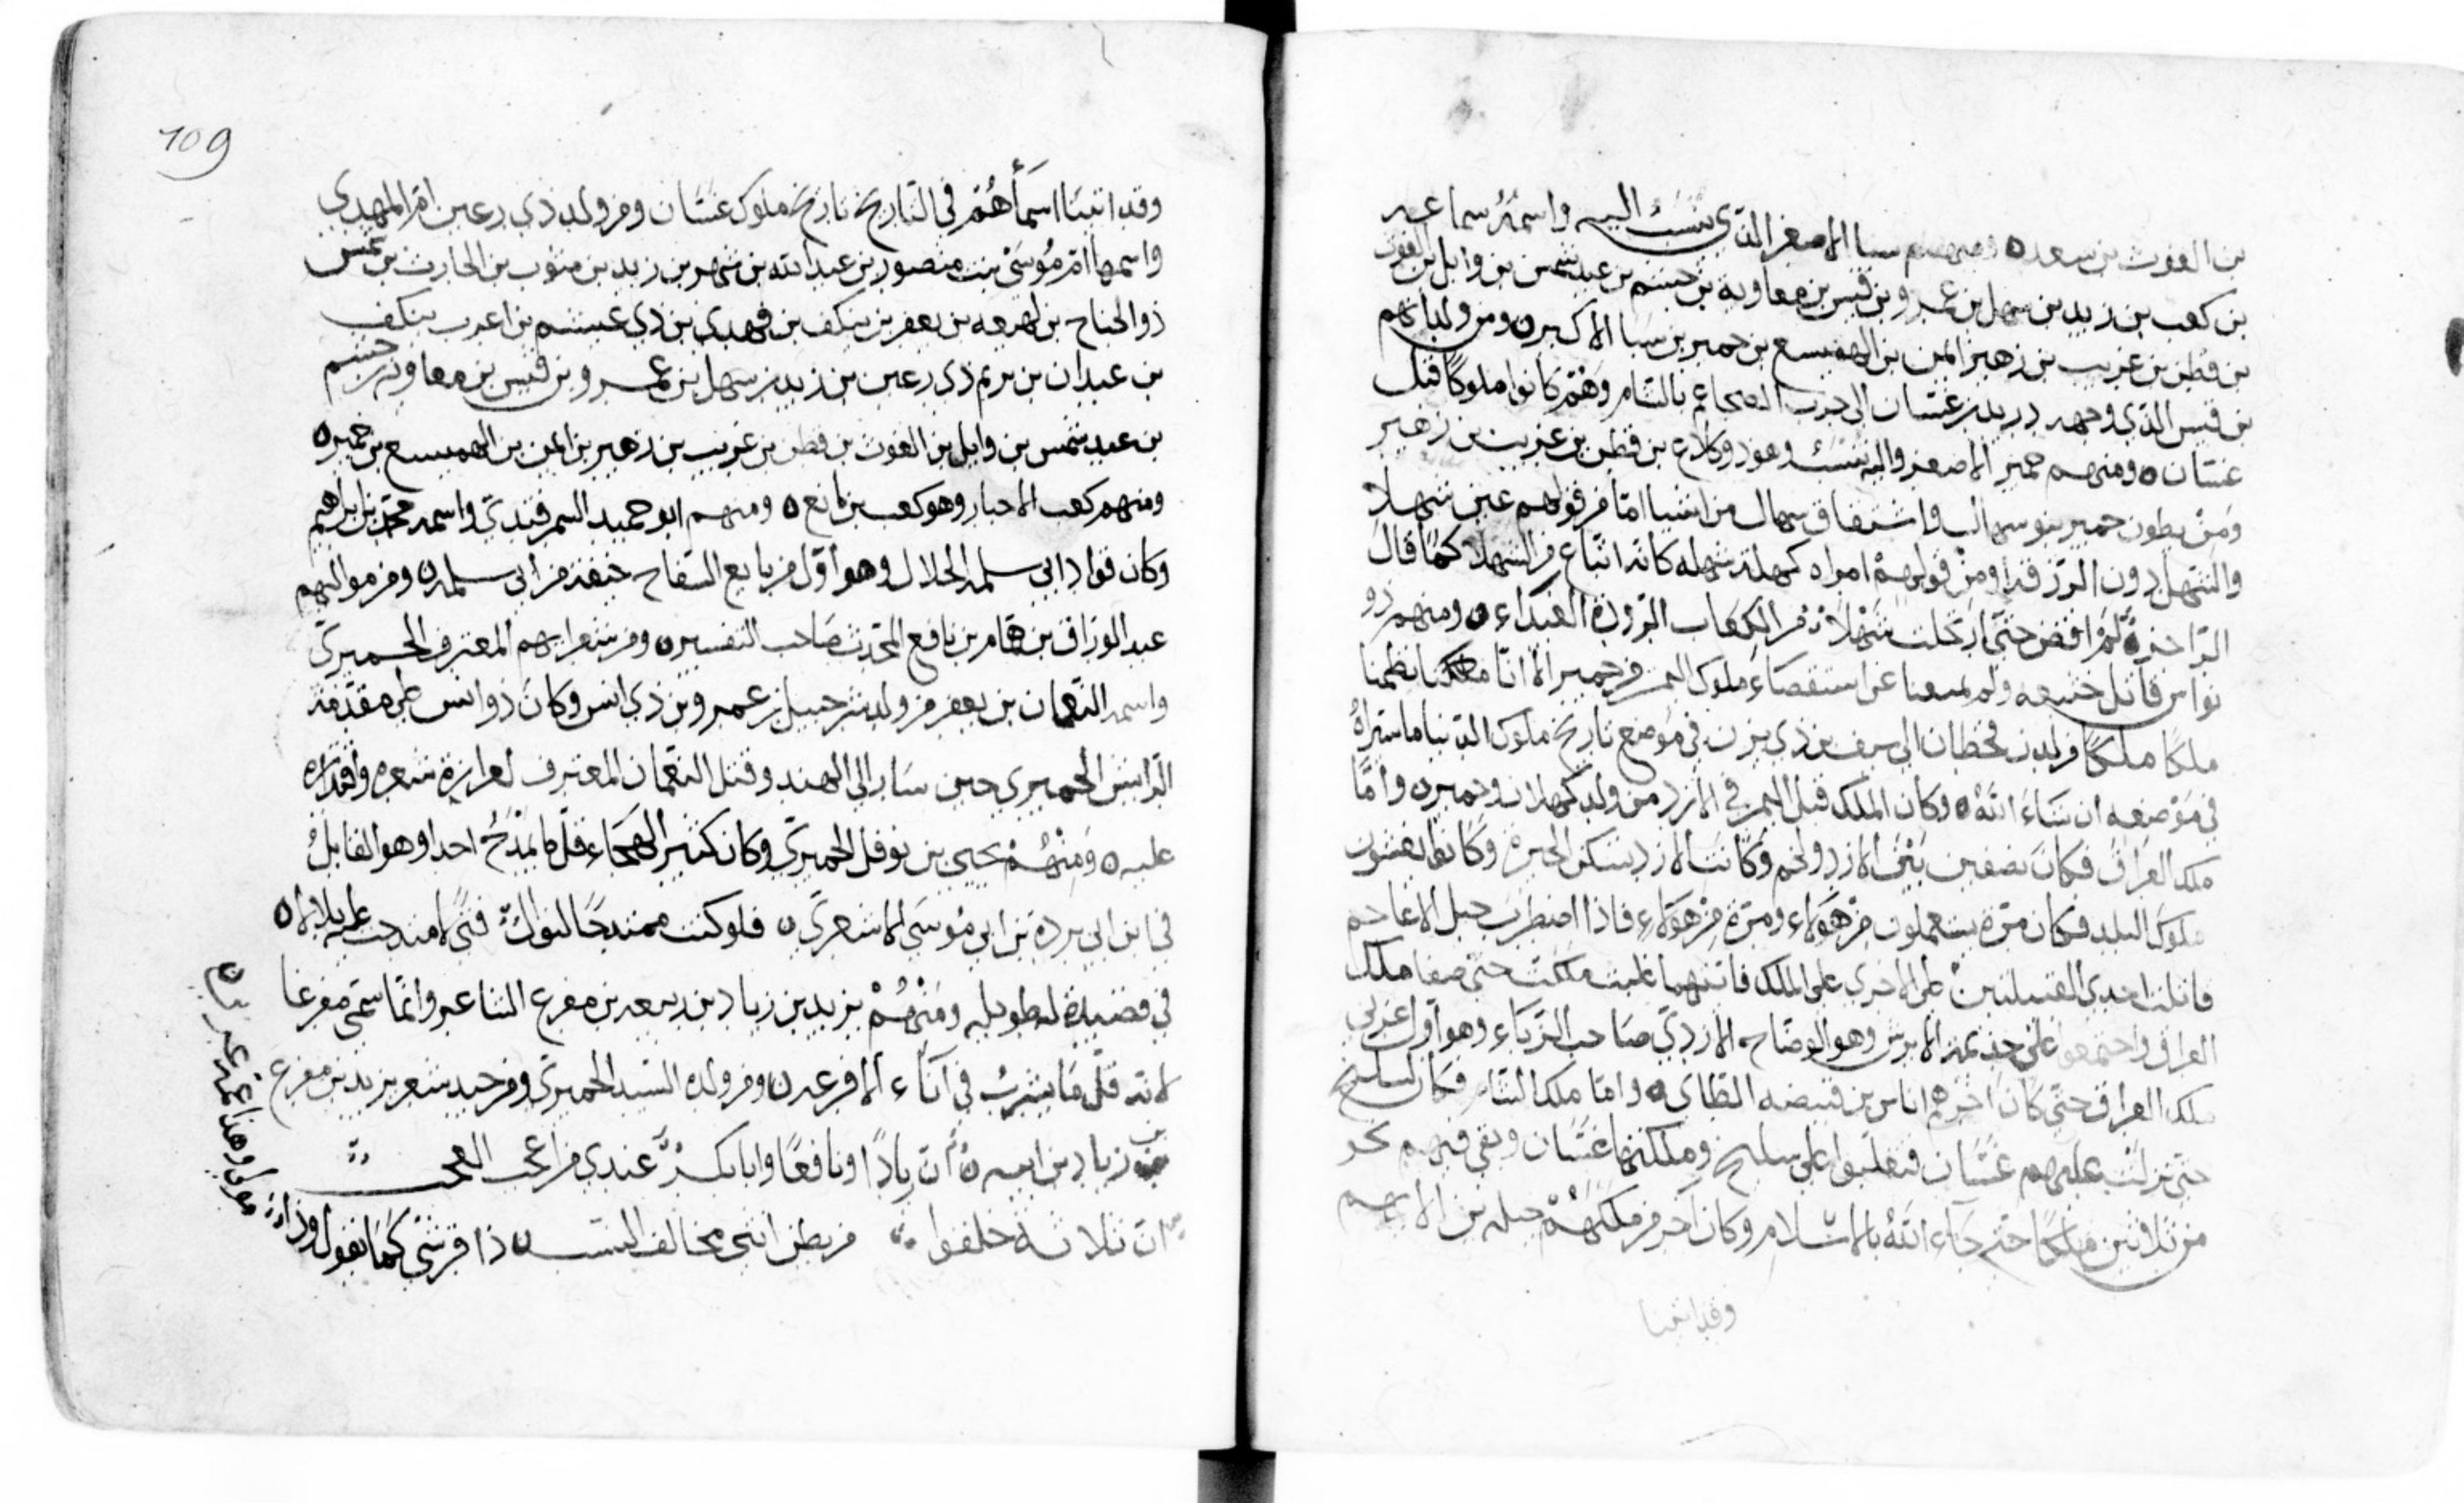 بن الغوث بن سعد ه ومنهم سبا الاصغر الذي ينسب اليه واسمه
بن كعب بن زيد بن سهل بن عمرو بن قيس بن معاوية بن جشم بن عبد شمس بن وايل بن الغوث
بن قطن بن عريب بن زهير ايمن بن الهميسع بن حمير بن سبا الاكبر ه ومن ولد
بن قيس الذي وجهه غسان الى حرب الضجاعم بالشام وهم كانوا ملوكا قبل
غسان ه ومنهم حمير الاصغر واليه ينسب وهو ذو كلاع بن قطن بن عريب بن زهير
ومن بطون حمير بنو سهال واشتقاق سهال من اشيا اما من قولهم عين شهلا
والشهل دون الزرقة او من قولهم امراه كهلة شهلة كانه اتباع من الشهل كما قال
الراجز ه لم اقض حتى ارتحلت شهلاتي من الكعاب الرودة الغيداء ه ومنهم ذو
نواس قاتل ولم يمنعنا عن استقصاء ملوك اليمن من حمير الا انا نظمنا
ملكا ملكا من لدن قحطان الى سيف بن ذي يزن في موضع تاريخ ملوك الدنيا ما ستراه
في موضعه ان شاء الله ه وكان الملك قبل اليمن في الازد من ولد كهلان وحمير ه واما
ملك العراق فكان نصفين بين الازد ولخم وكانت الازد تسكن الحيرة وكانوا
ملوك البلد فكان مرة يستعملون من هؤلاء ومرة من هؤلاء فاذا اضطرب حبل الاعاجم
قاتلت احدى القبيلتين على الاخرى على الملك فايتهما غلبت ملكت حتى صفا ملك
العراق واجتمعوا على جذيمة الابرش وهو الوضاح الازدي صاحب الزباء وهو اول عربي
ملك العراق حتى كان اخرهم اياس بن قبيصه الطاى ه واما ملك الشام فكان لسليح
حتى نزلت عليهم غسان فتغلبوا على سليح وملكتها غسان وبقي فيهم نحو
من ثلاثين ملكا حتى جاء الله بالاسلام وكان اخر من ملك منهم جبله بن الايهم
وقد اثبتنا
109
وقد اثبتنا اسماهم في التاريخ تاريخ ملوك غسان ومن ولد ذي رعين ام المهدي
واسمها ام موسى بنت منصور بن عبد الله بن شهر بن زيد بن مثوب بن الحارث بن شمس
ذو الجناح بن لهيعه بن يعفر بن ينكف بن فهدى بن ذي عيشم بن اعرب ينكف
بن عبدان بن يريم ذي رعين بن زيد بن سهل بن عمرو بن قيس بن معاويه بن جشم
بن عبد شمس بن وايل بن الغوث بن قطن بن عريب بن زهير بن ايمن بن الهميسع بن حمير ه
ومنهم كعب الاحبار وهو كعب بن مانع ه ومنهم ابو حميد السمرقندي واسمه محمد بن ابراهيم
وكان من قواد ابي سلمة الخلال وهو اول من بايع السفاح خيفة من ابي سلمة ه ومن مواليهم
عبد الرزاق بن همام بن نافع المحدث صاحب التفسير ه ومن شعرايهم المعترف الحميري
واسمه النعمان بن يعفر من ولد شرحبيل بن عمرو بن ذي انس وكان ذو انس على مقدمة
الرايش الحميري حين سار الى الهند وقيل النعمان المعترف لغرارة شعره واقتداره
عليه ه ومنهم يحيى بن نوفل الحميري وكان كثير الهجاء قل ما يمدح احدا وهو القايل
في ابن ابي بردة بن ابي موسى الاشعري ه فلو كنت ممتدحا للنوال فتى لامتدحت عليه بلالا ه
في قصيدة له طويله ومنهم يزيد بن زياد بن ربيعه بن مفرغ الشاعر وانما سمي مفرغا
لانه قل ما يشرب في اناء الا فرغه ه ومن ولده السيد الحميري ومن جيد شعر يزيد بن مفرغ
زياد بن ابيه ه ان زيادا ونافعا وابا بكرة عندي من اعجب العجب
ان ثلاثة خلقوا من بطن انثى مخالف النسب ه ذا قرشي كما يقول وذا
مولى وهذا بن عمه عربي